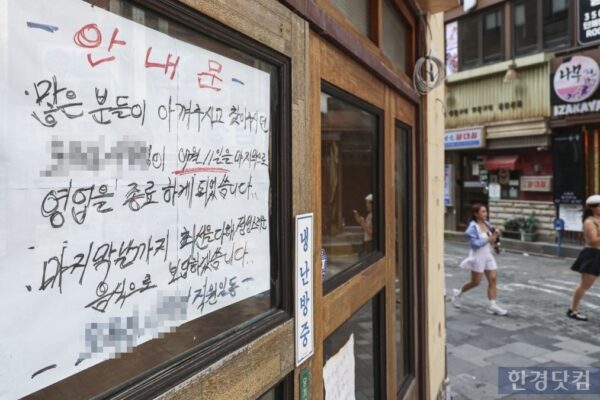 안내문
많은 분들이 아껴주시고 찾아주시던
이 9월 11일을 마지막으로
영업을 종료하게 되었습니다..
마지막날까지 최선을 다해 정성스러운
음식으로 보답하겠습니다..
직원일동
냉난방중
나무
IZAKAYA
ROOM
한경닷컴